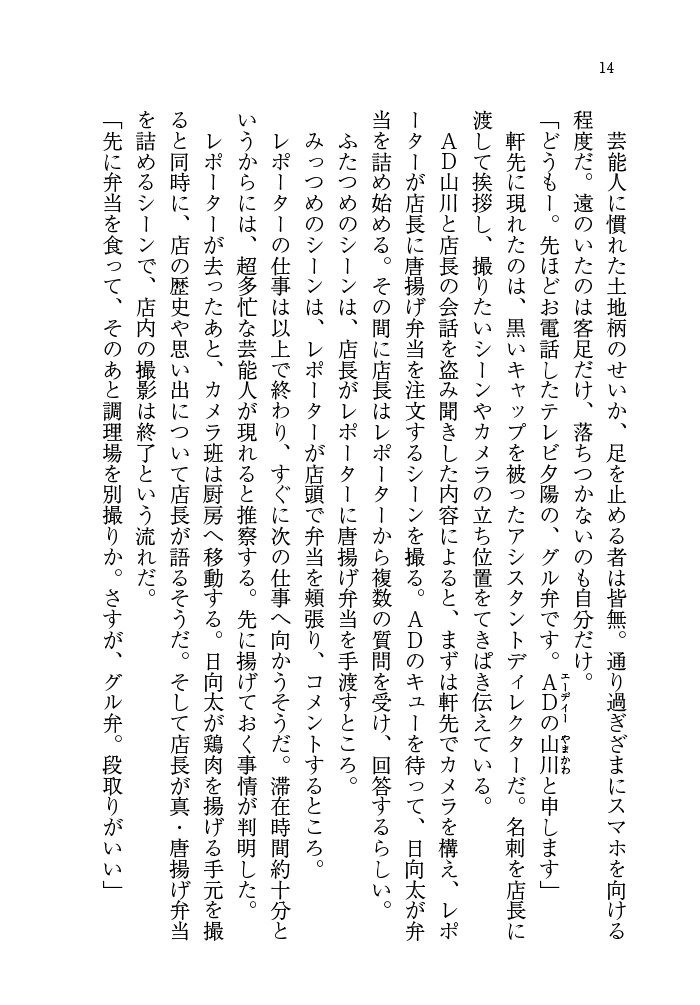 14
芸能人に慣れた土地柄のせいか、足を止める者は皆無。通り過ぎざまにスマホを向ける
程度だ。遠のいたのは客足だけ、落ちつかないのも自分だけ。
「どうもー。先ほどお電話したテレビ夕陽の、グル弁です。ＡＤの山川と申します」
エーディー　やまかわ
軒先に現れたのは、黒いキャップを被ったアシスタントディレクターだ。名刺を店長に
渡して挨拶し、撮りたいシーンやカメラの立ち位置をてきぱき伝えている。
ＡＤ山川と店長の会話を盗み聞きした内容によると、まずは軒先でカメラを構え、レポ
ーターが店長に唐揚げ弁当を注文するシーンを撮る。ＡＤのキューを待って、日向太が弁
当を詰め始める。その間に店長はレポーターから複数の質問を受け、回答するらしい。
ふたつめのシーンは、店長がレポーターに唐揚げ弁当を手渡すところ。
みっつめのシーンは、レポーターが店頭で弁当を頬張り、コメントするところ。
レポーターの仕事は以上で終わり、すぐに次の仕事へ向かうそうだ。滞在時間約十分と
いうからには、超多忙な芸能人が現れると推察する。先に揚げておく事情が判明した。
レポーターが去ったあと、カメラ班は厨房へ移動する。日向太が鶏肉を揚げる手元を撮
ると同時に、店の歴史や思い出について店長が語るそうだ。そして店長が真・唐揚げ弁当
を詰めるシーンで、店内の撮影は終了という流れだ。
「先に弁当を食って、そのあと調理場を別撮りか。さすが、グル弁。段取りがいい」